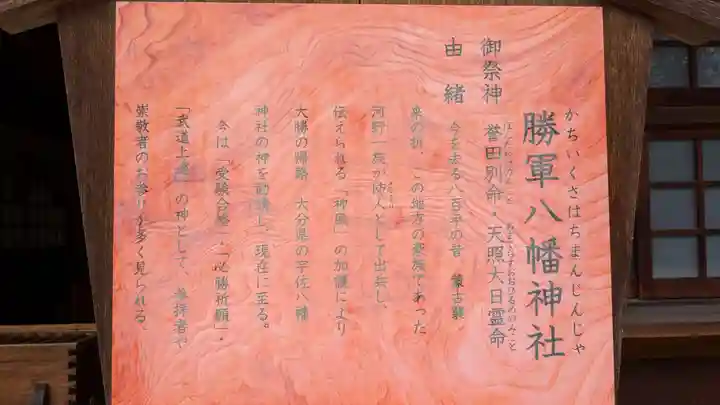 かちいくさはちまんじんじゃ
勝軍八幡神社
御祭神 誉田別命・天照大日霊命
ほんだわけのみこと あまてらすおおひるめのみこと
由緒
今を去る八百年の昔 蒙古襲
来の折、この地方の豪族であった
河野一族が使人として出兵し、
伝えられる「神風」の加護により
大勝の帰路 大分県の宇佐八幡
神社の神を勧請し、現在に至る。
今は「受験合格」・「必勝祈願」・
「武道上達」の神として、参拝者や
崇敬者のお参りが多く見られる、